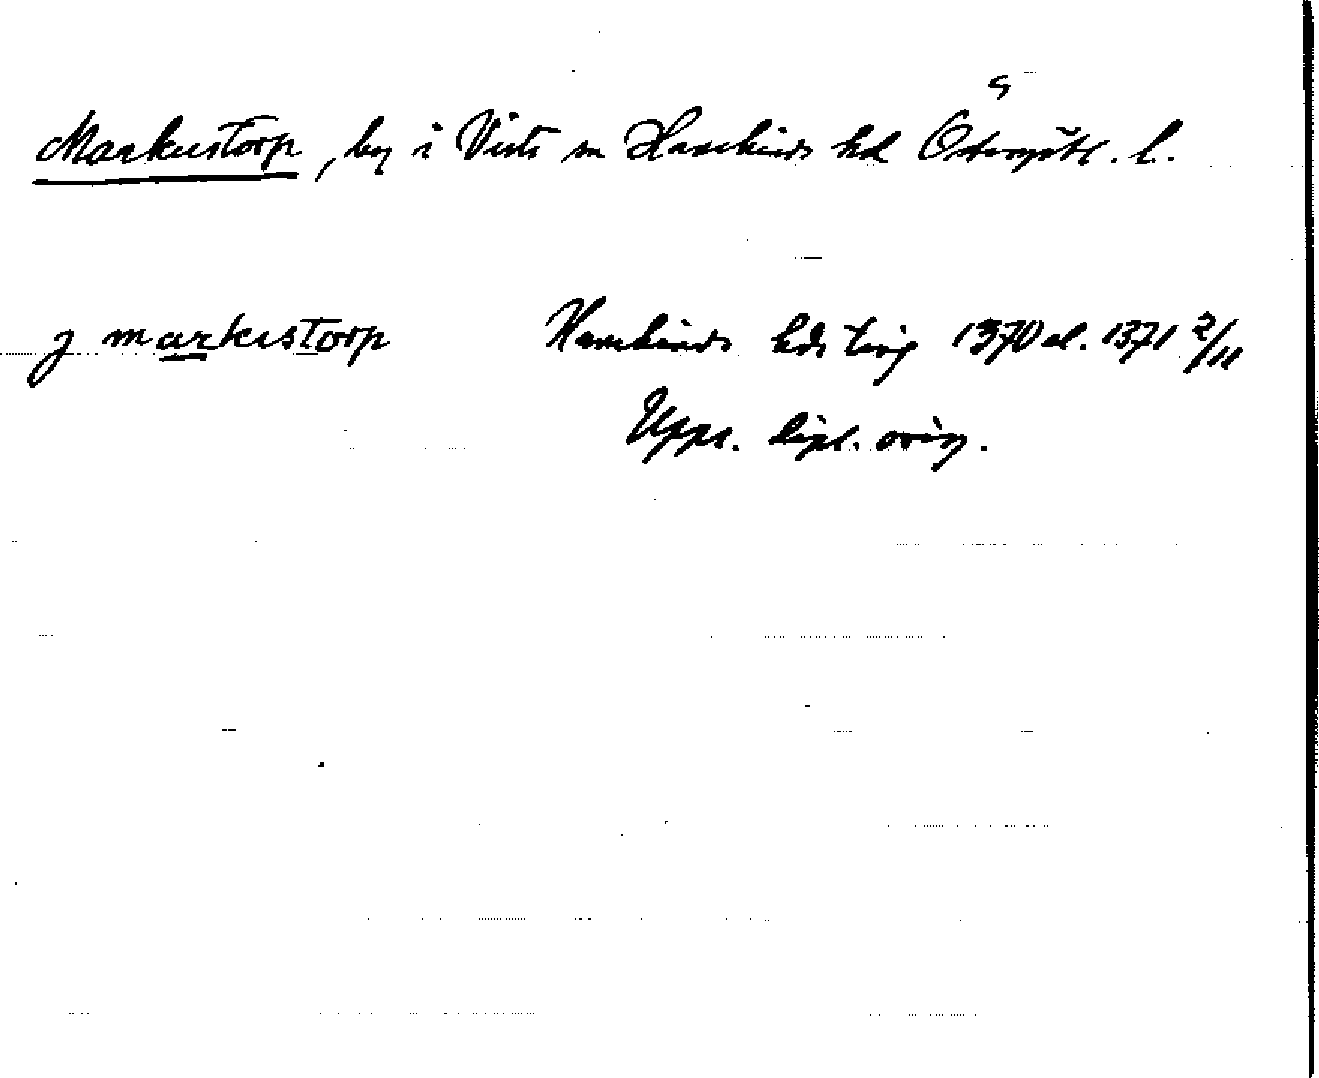 ς
Markustorp, by i Vists sn Hanekinds hd Östergötl. l.
j markustorp Hanekinds hds ting 1370 el. 1371 2/11
Upps. dipl. orig.